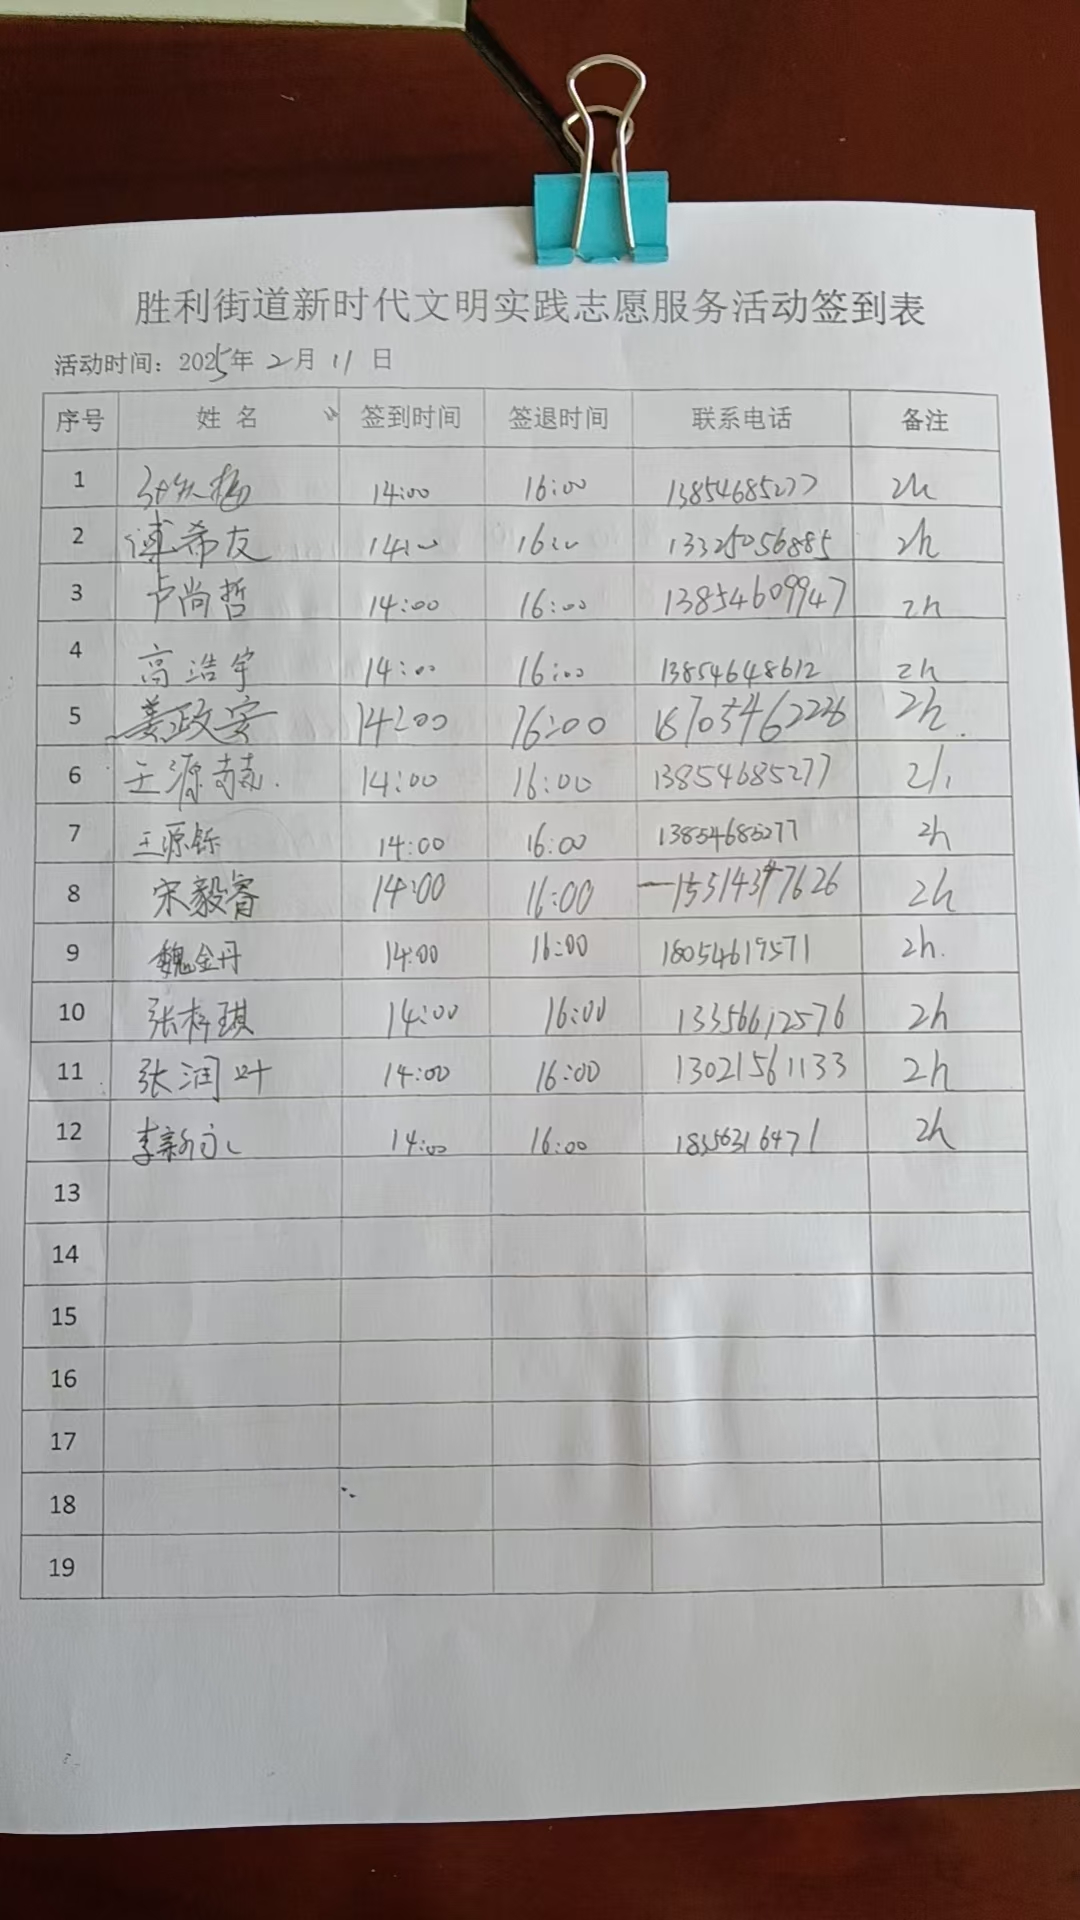 胜利街道新时代文明实践志愿服务活动签到表
活动时间：2025年 2月 11 日
序号 姓 名 签到时间 签退时间 联系电话 备注
1 14:00 16:00 13854685277 2h
2 傅希友 14:00 16:00 13325056885 2h
3 卢尚哲 14:00 16:00 13854609947 2h
4 高浩宇 14:00 16:00 13854648612 2h
5 姜政安 14:00 16:00 18705462226 2h.
6 王源 14:00 16:00 13854685277 2h
7 王源铄 14:00 16:00 13854685277 2h
8 宋毅睿 14:00 16:00 2h
9 魏金丹 14:00 16:00 18054619571 2h.
10 张梓琪 14:00 16:00 13356612576 2h
11 张润叶 14:00 16:00 13021561133 2h
12 李 14:00 16:00 18356316471 2h
13
14
15
16
17
18
19